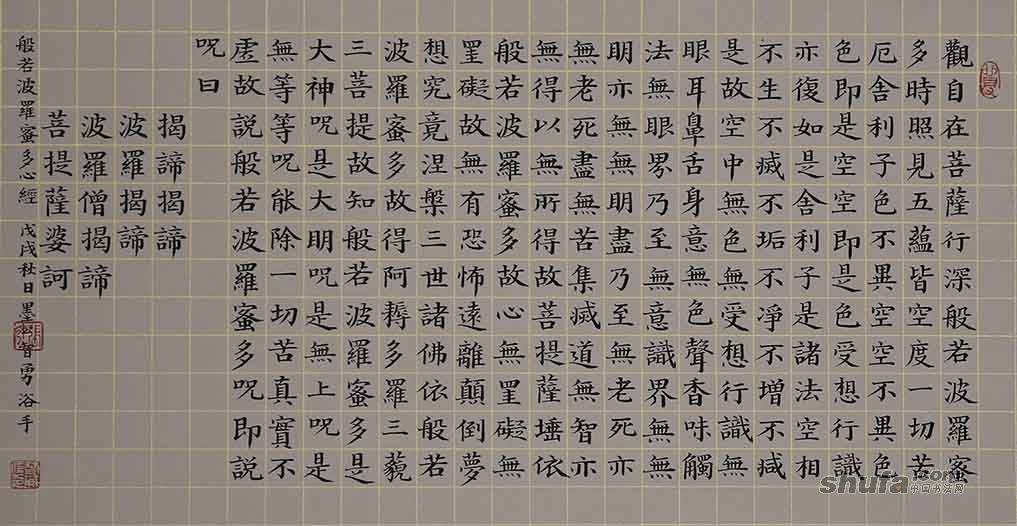 觀自在菩薩行深般若波羅蜜
多時照見五蘊皆空度一切苦
厄舍利子色不異空空不異色
色即是空空即是色受想行識
亦復如是舍利子是諸法空相
不生不滅不垢不淨不增不減
是故空中無色無受想行識無
眼耳鼻舌身意無色聲香味觸
法無眼界乃至無意識界無無
明亦無無明盡乃至無老死亦
無老死盡無苦集滅道無智亦
無得以無所得故菩提薩埵依
般若波羅蜜多故心無罣礙無
罣礙故無有恐怖遠離顛倒夢
想究竟涅槃三世諸佛依般若
波羅蜜多故得阿耨多羅三藐
三菩提故知般若波羅蜜多是
大神呪是大明呪是無上呪是
無等等呪能除一切苦真實不
虛故說般若波羅蜜多呪即說
呪曰
揭諦揭諦
波羅揭諦
波羅僧揭諦
菩提薩婆訶
般若波羅蜜多心經 戊戌秋日墨 勇浴手
shufa.com
中国书法网